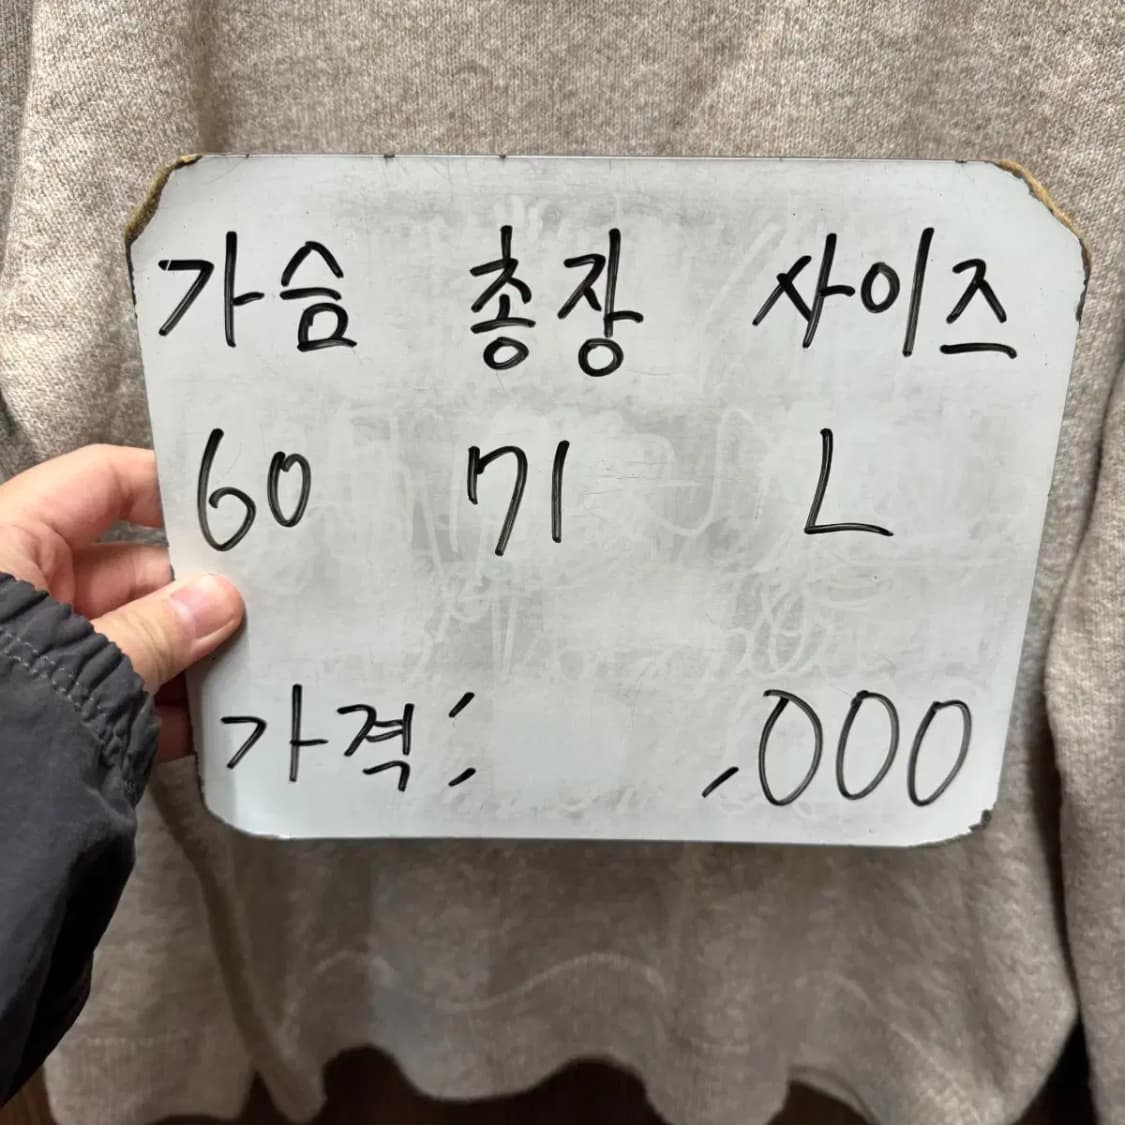 가슴 총장 사이즈
60 71 L
가격: ,000